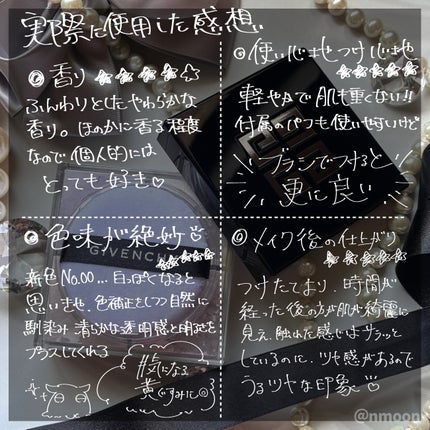 実際に使用した感想
◎香り ☆☆☆☆☆
ふんわりとしたやわらかな
香り。ほのかに香る程度
なので個人的には
とっても好き♡
◎使い心地つけ心地
☆☆☆☆☆
軽やかで肌も重くない!!
付属のパフも使いやすいけど
ブラシでつけると
更に良い
◎色味が絶妙
☆☆☆☆☆
GIVENCHY
新色No.00…白っぽくなると
思いきや、色補正をしつつ自然に
馴染み 清らかな透明感と明るさを
プラスしてくれる
#気になる
黄ぐすみに◎
◎メイク後の仕上がり
☆☆☆☆☆
つけたてより、時間が
経った後の方が肌が綺麗に
見え、触れた感じはサラッと
しているのに、ツヤ感があるので
うるツヤな印象♡
@nmoon